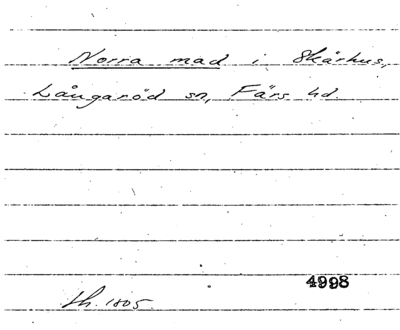 Norra mad i Skårhus,
Långaröd sn, Färs hd.
4998
th. 1805.